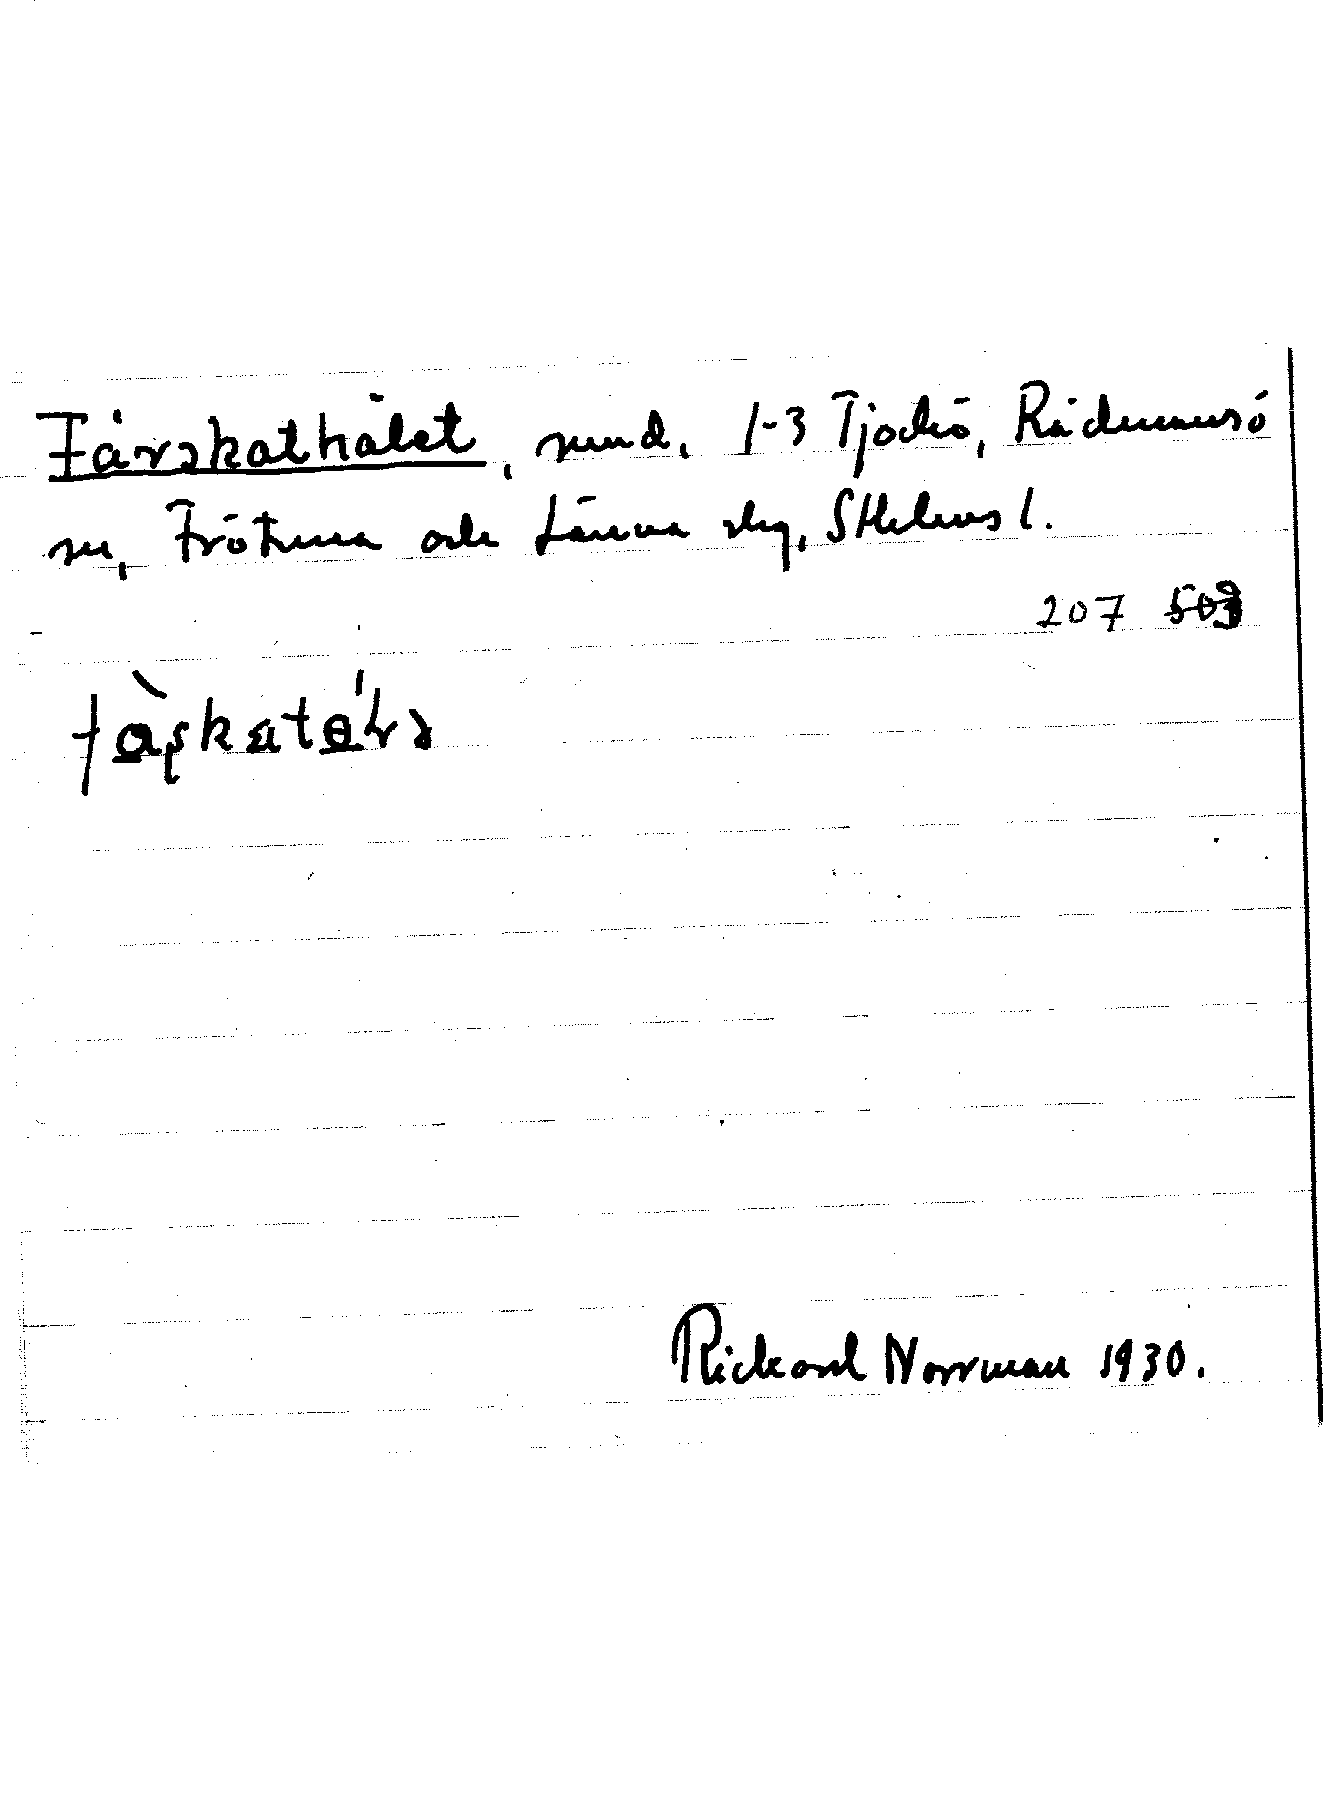 Fårskathålet, sund, 1-3 Tjockö, Rådmansö
sn, Frötuna och Länna skg, Sthlms l.
207 503
fàskatá
Rickard Norrman 1930.